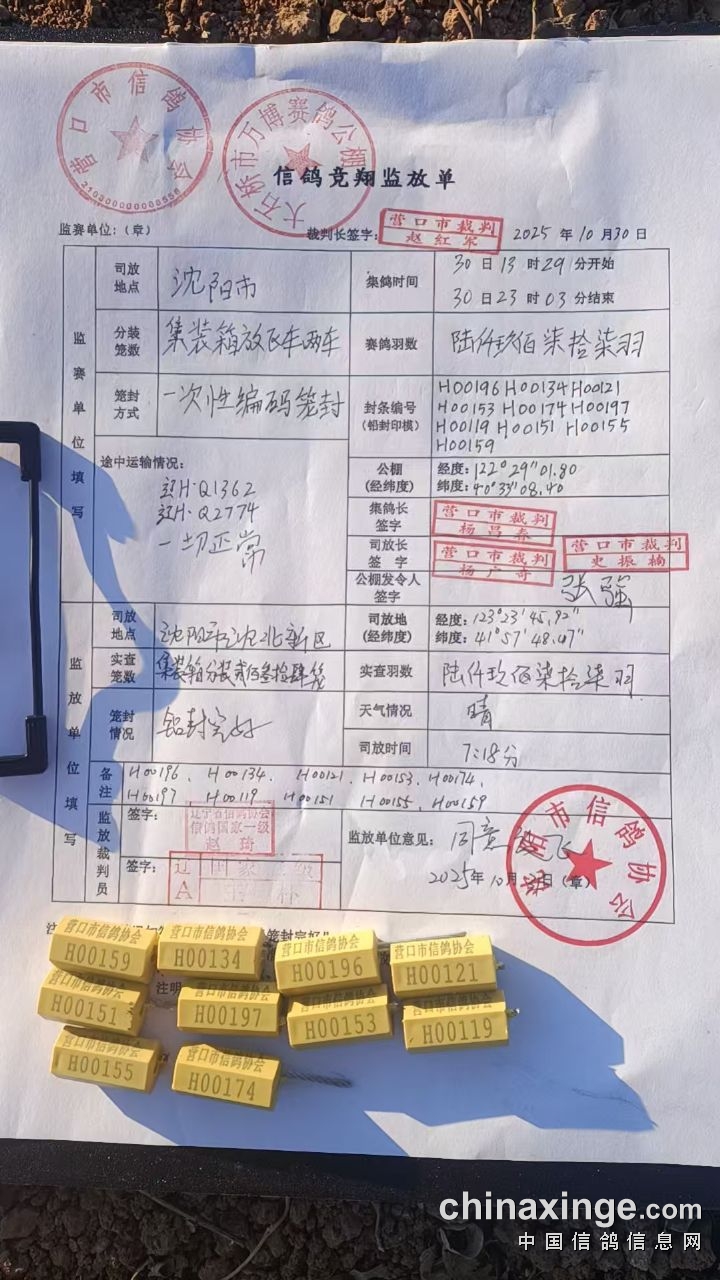 营口市信鸽协会
210300000000558
大石桥市万博赛鸽公棚
信鸽竞翔监放单
监赛单位:(章)
裁判长签字:
营口市裁判
赵红军
2025年10月30日
监赛单位填写
司放地点
沈阳市
集鸽时间
30日13时29分开始
30日23时03分结束
分装笼数
集装箱放飞车两车
赛鸽羽数
陆仟玖佰柒拾柒羽
笼封方式
一次性编码笼封
封条编号
(铅封印模)
H00196 H00134 H00121
H00153 H00174 H00197
H00119 H00151 H00155
H00159
途中运输情况:
辽H·Q1362
辽H·Q2774
一切正常
公棚
(经纬度)
经度:122°29″01.80
纬度:40°33″08.40
集鸽长签字
营口市裁判
杨昌春
司放长签字
营口市裁判
杨广奇
营口市裁判
史振楠
公棚发令人签字
张强
监放单位填写
司放地点
沈阳市沈北新区
司放地
(经纬度)
经度:123°23′45.92″
纬度:41°57′48.47″
实查笼数
集装箱分装贰佰叁拾肆笼
实查羽数
陆仟玖佰柒拾柒羽
笼封情况
铅封完好
天气情况
晴
司放时间
7:18分
备注
H00196、H00134、H00121、H00153、H00174、
H00197 H00119 H00151 H00155、H00159
监放裁判员
签字:
辽宁省信鸽协会
信鸽国家一级
赵琦
签字:
辽 国家一级
A
监放单位意见:
同意放飞
2025年10月31日(章)
沈阳市信鸽协会
笼封完好"
注明
营口市信鸽协会
H00159
营口市信鸽协会
H00134
营口市信鸽协会
H00196
营口市信鸽协会
H00121
营口市信鸽协会
H00151
营口市信鸽协会
H00197
营口市信鸽协会
H00153
营口市信鸽协会
H00119
营口市信鸽协会
H00155
营口市信鸽协会
H00174
chinaxinge.com
中国信鸽信息网